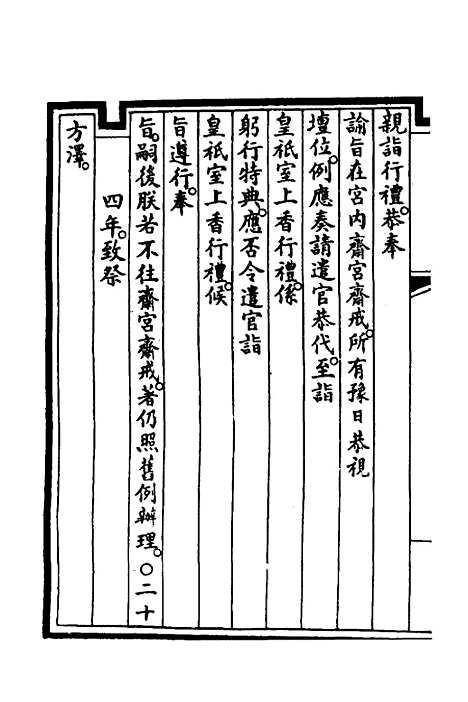 親詣行禮。恭奉
諭旨在宮內齋宮齋戒。所有豫日恭視
壇位。例應奏請遣官恭代。至詣
皇祇室上香行禮。係
躬行特典。應否令遣官詣
皇祇室上香行禮。候
旨遵行。奉
旨。嗣後朕若不往齋宮齋戒。著仍照舊例辦理。○二十
四年。致祭
方澤。